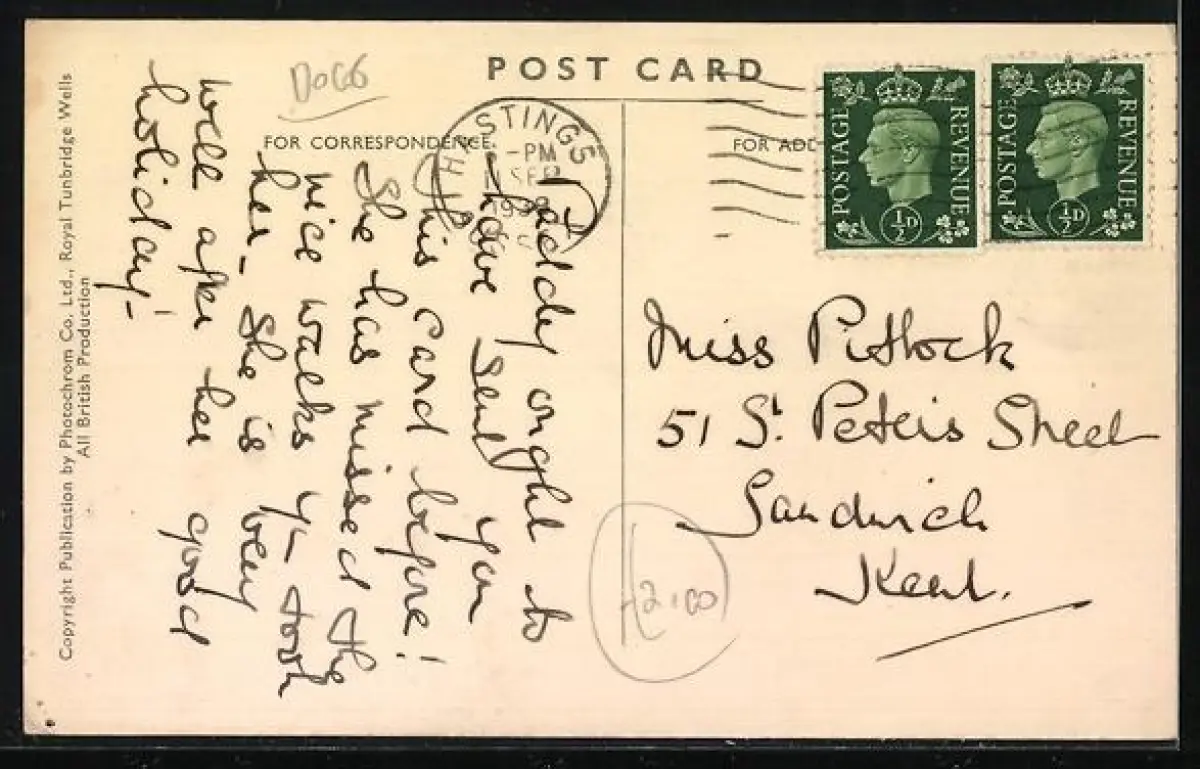 POST CARD
DOGS
FOR CORRESPONDENCE.
FOR ADD
HASTINGS
-PM
SEP
POSTAGE
REVENUE
½D
POSTAGE
REVENUE
½D
Paddy ought to
have send you
this card before!
She has missed the
nice walks yr took
her - She is very
well after her good
holiday!
Miss Pittock
51 St. Peters Street
Sandwich
Kent.
£2.00
Copyright Publication by Photochrom Co. Ltd., Royal Tunbridge Wells
All British Production